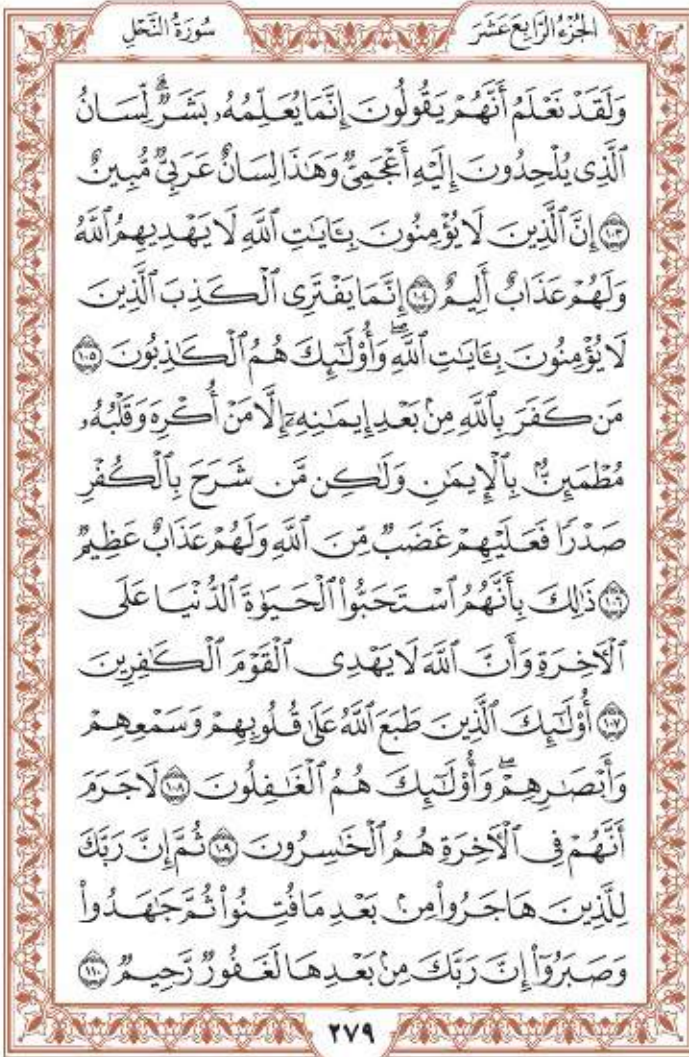 الجُزْءُ الرَّابِعَ عَشَرَ
سُورَةُ النَّحْلِ
وَلَقَدْ نَعْلَمُ أَنَّهُمْ يَقُولُونَ إِنَّمَا يُعَلِّمُهُۥ بَشَرٌۗ لِّسَانُ
ٱلَّذِى يُلْحِدُونَ إِلَيْهِ أَعْجَمِىٌّ وَهَٰذَا لِسَانٌ عَرَبِىٌّ مُّبِينٌ
۝١٠٣ إِنَّ ٱلَّذِينَ لَا يُؤْمِنُونَ بِـَٔايَٰتِ ٱللَّهِ لَا يَهْدِيهِمُ ٱللَّهُ
وَلَهُمْ عَذَابٌ أَلِيمٌ ۝١٠٤ إِنَّمَا يَفْتَرِى ٱلْكَذِبَ ٱلَّذِينَ
لَا يُؤْمِنُونَ بِـَٔايَٰتِ ٱللَّهِۖ وَأُو۟لَٰٓئِكَ هُمُ ٱلْكَٰذِبُونَ ۝١٠٥
مَن كَفَرَ بِٱللَّهِ مِنۢ بَعْدِ إِيمَٰنِهِۦٓ إِلَّا مَنْ أُكْرِهَ وَقَلْبُهُۥ
مُطْمَئِنٌّۢ بِٱلْإِيمَٰنِ وَلَٰكِن مَّن شَرَحَ بِٱلْكُفْرِ
صَدْرًا فَعَلَيْهِمْ غَضَبٌ مِّنَ ٱللَّهِ وَلَهُمْ عَذَابٌ عَظِيمٌ
۝١٠٦ ذَٰلِكَ بِأَنَّهُمُ ٱسْتَحَبُّوا۟ ٱلْحَيَوٰةَ ٱلدُّنْيَا عَلَى
ٱلْـَٔاخِرَةِ وَأَنَّ ٱللَّهَ لَا يَهْدِى ٱلْقَوْمَ ٱلْكَٰفِرِينَ
۝١٠٧ أُو۟لَٰٓئِكَ ٱلَّذِينَ طَبَعَ ٱللَّهُ عَلَىٰ قُلُوبِهِمْ وَسَمْعِهِمْ
وَأَبْصَٰرِهِمْۖ وَأُو۟لَٰٓئِكَ هُمُ ٱلْغَٰفِلُونَ ۝١٠٨ لَا جَرَمَ
أَنَّهُمْ فِى ٱلْـَٔاخِرَةِ هُمُ ٱلْخَٰسِرُونَ ۝١٠٩ ثُمَّ إِنَّ رَبَّكَ
لِلَّذِينَ هَاجَرُوا۟ مِنۢ بَعْدِ مَا فُتِنُوا۟ ثُمَّ جَٰهَدُوا۟
وَصَبَرُوٓا۟ إِنَّ رَبَّكَ مِنۢ بَعْدِهَا لَغَفُورٌ رَّحِيمٌ ۝١١٠
٢٧٩